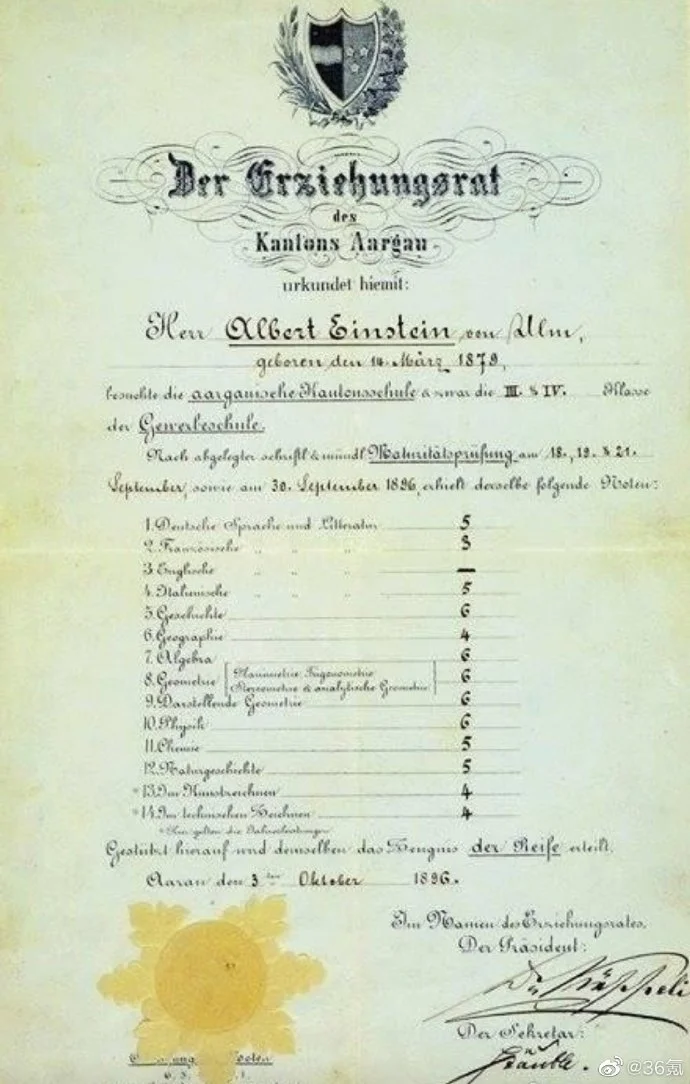 Der Erziehungsrat
des
Kantons Aargau
urkundet hiemit:
Herr Albert Einstein von Ulm,
geboren den 14. März 1879,
besuchte die aargauische Kantonsschule & zwar die III. & IV. Klasse
der Gewerbeschule.
Nach abgelegter schriftl & mündl Maturitätsprüfung am 18., 19. & 21.
September, sowie am 30. September 1896, erhielt derselbe folgende Noten:
1. Deutsche Sprache und Litteratur 5
2. Französische „ „ „ 3
3. Englische „ „ „ —
4. Italienische „ „ „ 5
5. Geschichte 6
6. Geographie 4
7. Algebra 6
8. Geometrie { Planimetrie Trigonometrie
Stereometrie & analytische Geometrie } 6
9. Darstellende Geometrie 6
10. Physik 6
11. Chemie 5
12. Naturgeschichte 5
* 13. Im Kunstzeichnen 4
* 14. Im technischen Zeichnen 4
* Hier gelten die Jahresleistungen
Gestützt hierauf wird demselben das Zeugnis der Reife erteilt.
Aarau den 3ten Oktober 1896.
Im Namen des Erziehungsrates,
Der Präsident:
Dr Käppeli
Der Sekretär:
Stäuble.
@36氪